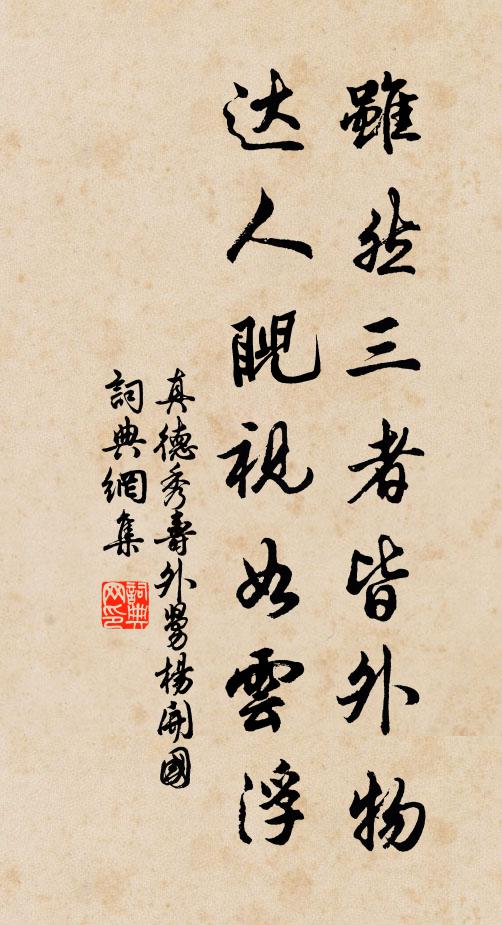 雖然三者皆外物
达人睨視如雲浮
真德秀壽外舅楊開國
詞典網集
詞典网印